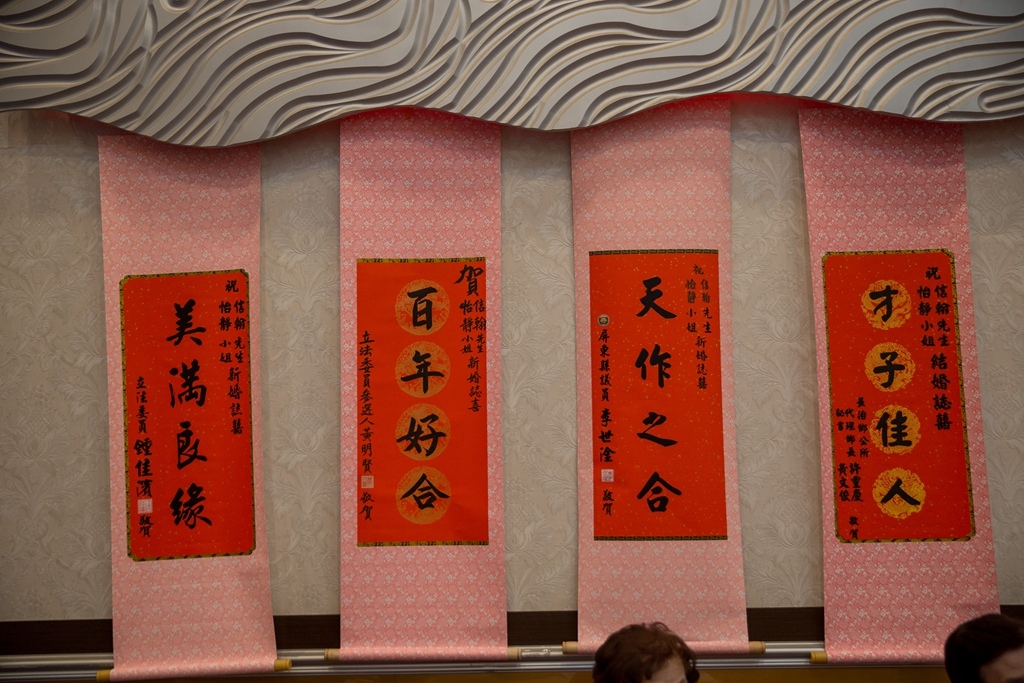 祝
信翰先生
怡靜小姐
新婚誌囍
美滿良緣
立法委員 鍾佳濱 敬賀
賀
信翰先生
怡靜小姐
新婚誌喜
百年好合
立法委員參選人 黃明賢 敬賀
祝
信翰先生
怡靜小姐
新婚誌囍
天作之合
屏東縣議員 李世淦 敬賀
祝
信翰先生
怡靜小姐
結婚誌囍
才子佳人
長治鄉公所
代理鄉長 許重慶
秘書 黃文俊
敬賀